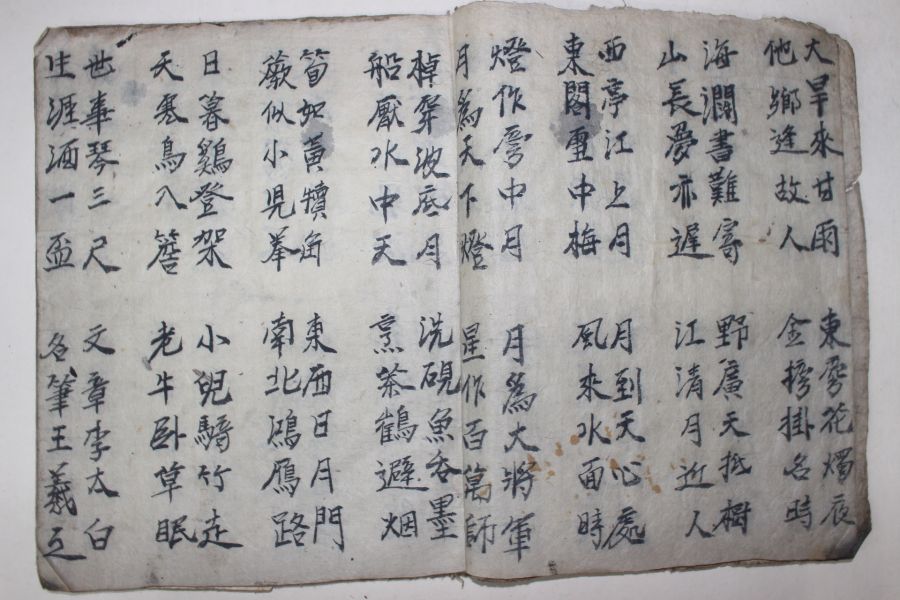 大旱來甘雨
他鄉逢故人
東房花燭夜
金榜掛名時
海濶書難寄
山長夢亦遲
野廣天抵樹
江清月近人
西亭江上月
東閣雪中梅
月到天心處
風來水面時
燈作房中月
月爲天下燈
月爲大將軍
星作百萬師
棹穿波底月
船壓水中天
洗硯魚吞墨
烹茶鶴避烟
筍如黃犢角
蕨似小兒拳
東西日月門
南北鴻鴈路
日暮鷄登架
天寒鳥入簷
小兒騎竹走
老牛卧草眠
世事琴三尺
生涯酒一盃
文章李太白
名筆王羲之